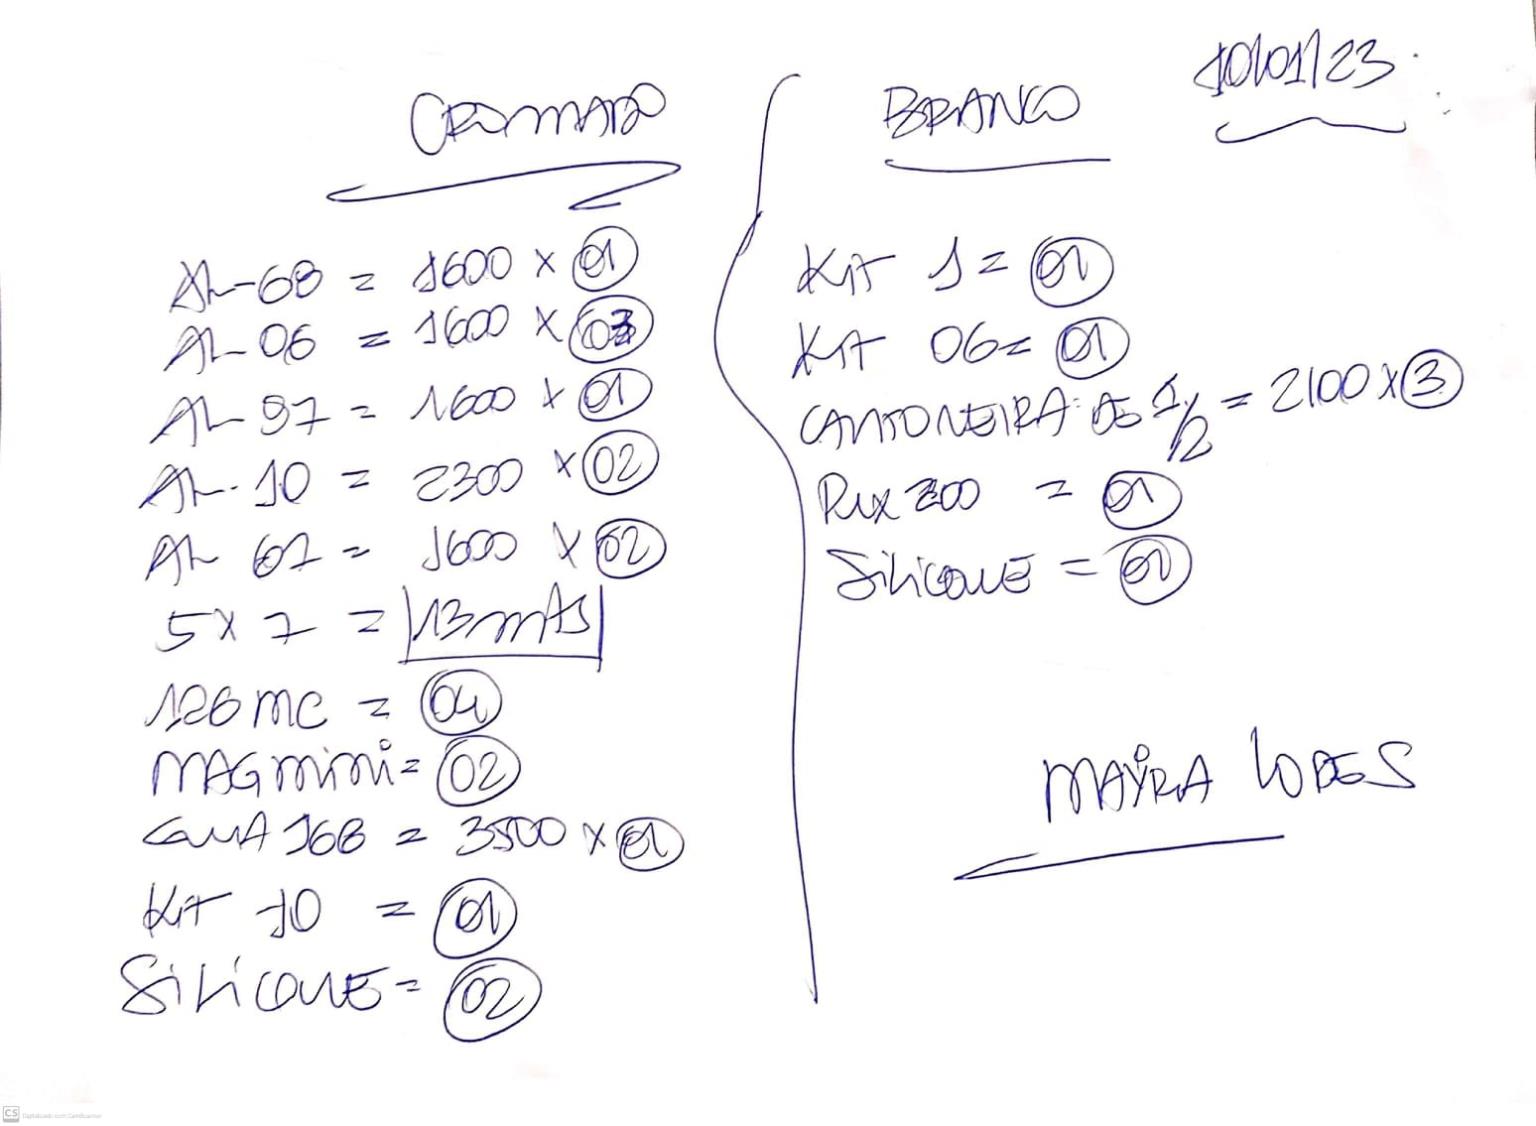 10/01/23
CROMADO
AL-68 = 1600 x 01
AL-06 = 1600 x 03
AL-97 = 1600 x 01
AL-10 = 2300 x 02
AL 67 = 1600 x 02
5x7 = 13 mts
126 MC = 04
MAG mini = 02
168 = 3500 x 01
Kit 10 = 01
SILICONE = 02
BRANCO
Kit 1 = 01
Kit 06 = 01
CANTONEIRA DE 1/2 = 2100 x 3
= 01
SILICONE = 01
MAYRA LOPES
CS Digitalizado com CamScanner